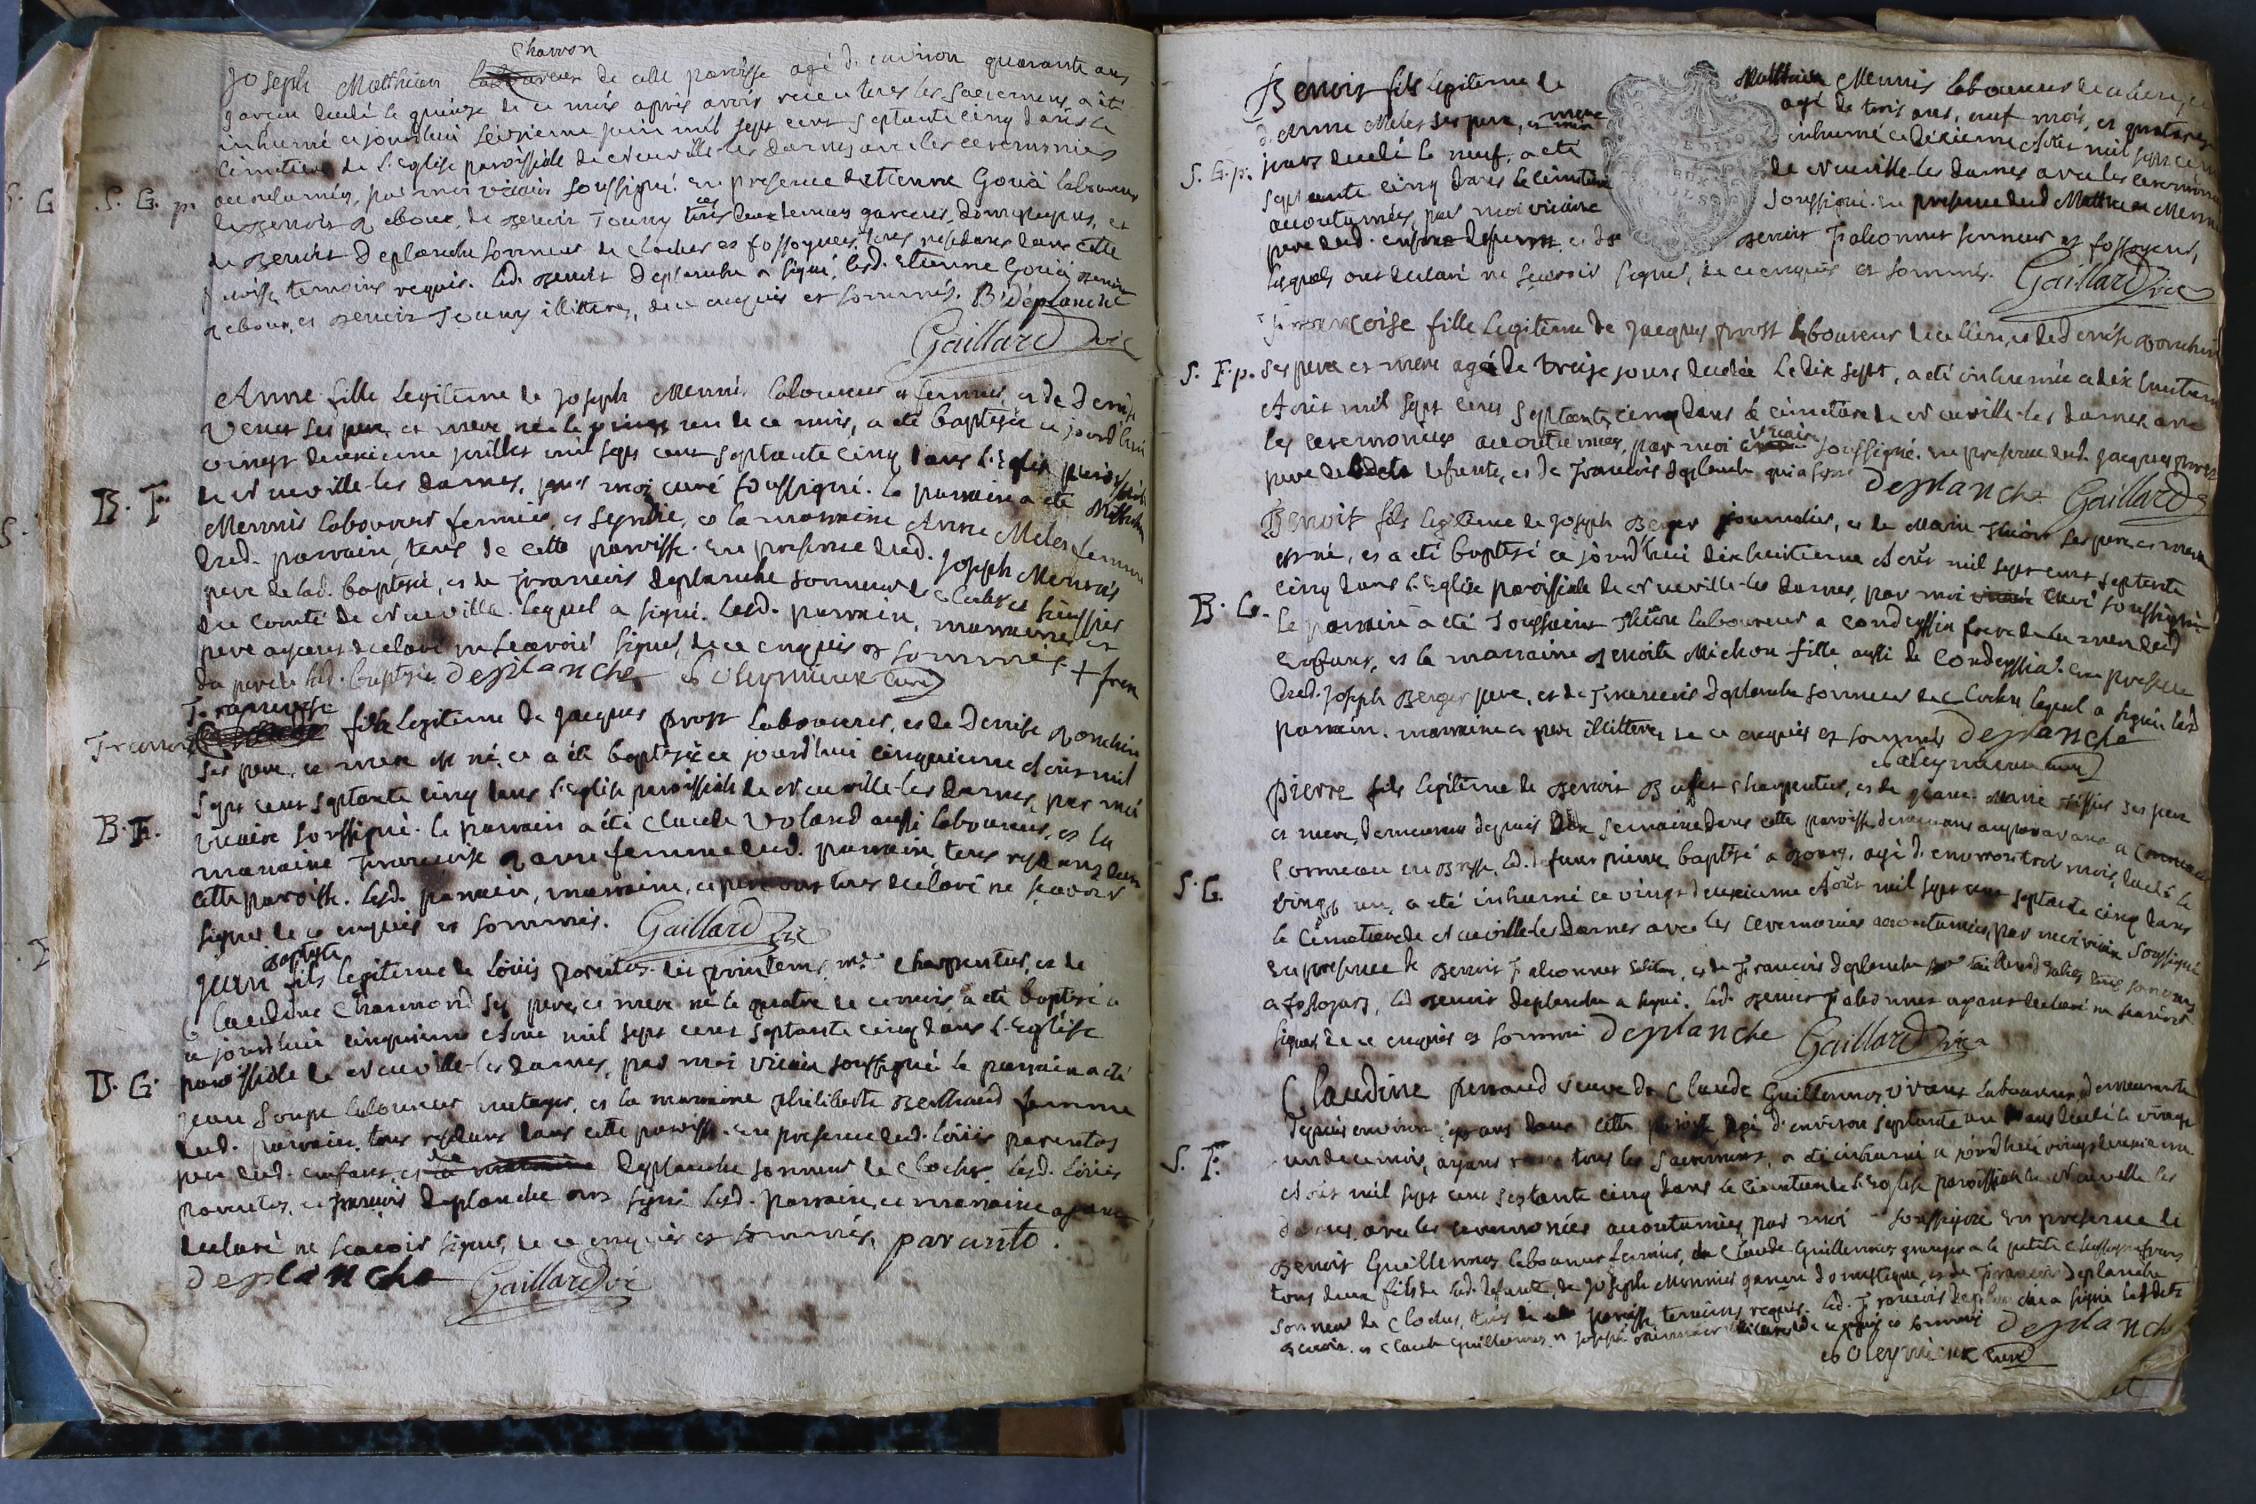 Charron
Joseph Matthieu laboureur de cette paroisse agé d'environ quarante ans
garçon decedé le quinze de ce mois après avoir reçu tous les sacremens, a été
inhumé ce jourd'hui seizieme juin mil sept cent septante cinq dans le
cimetiere de l'Eglise paroissiale de Neuville-les-dames avec les ceremonies
S. G. p.
accoutumées, par moi vicaire soussigné. en presence d'Etienne laboureur
de Benoit de Benoit Jouny tous garcons domestiques, et
de Benoit Deplanche sonneur de cloches et fossoyeur, tous residans dans cette
paroisse temoins requis. led. Benoit Deplanche a signé, lesd. Etienne Benoit
et Benoit Jouny illitterés, de ce enquis et sommés. B: Deplanche
Gaillard vic
Anne fille legitime de Joseph Mennis laboureur et fermier, et de Denise
Venet ses pere et mere née le vingt un de ce mois, a été baptisée ce jourd'hui
vingt deuxieme juillet mil sept cent septante cinq dans l'Eglise paroissiale
B. F
de Neuville-les-dames, par moi curé soussigné. le parrain a été Matthieu
Mennis laboureur fermier, et syndic, et la marraine Anne Meles femme
dud. parrain, tous de cette paroisse. en presence dud. Joseph Mennis
pere de lad. baptisée, et de Francois deplanche sonneur de cloches et huissier
du Comté de Neuville. lequel a signé. lesd. parrain, marraine et
pere ayant declaré ne scavoir signer, de ce enquis et sommés + frere
du pere de lad. baptisée deplanche curé
Francoise
fille legitime de Jacques prost laboureur, et de Denise Ponchin
ses pere et mere est né, et a été baptisée ce jourd'hui cinquieme Aout mil
sept cent septante cinq dans l'Eglise paroissiale de Neuville-les-dames, par moi
B. F.
vicaire soussigné. le parrain a été Claude Voland aussi laboureur, et la
marraine Francoise femme dud. parrain, tous residans dans
cette paroisse. lesd. parrain, marraine, et pere ont tous declaré ne scavoir
signer de ce enquis et sommés. Gaillard vic
baptiste
Jean fils legitime de Loüis parentos dit printems, me. charpentier, et de
Claudine Chamond ses pere, et mere né le quatre de ce mois a été baptisé
ce jourd'hui cinquieme Aout mil sept cent septante cinq dans l'Eglise
B. G.
paroissiale de Neuville-les-dames, par moi vicaire soussigné le parrain a été
Jean Soupe laboureur metayer, et la marraine philiberte Berthaud femme
dud. parrain, tous residans dans cette paroisse. en presence dud. Loüis parentos
pere dud. enfant, et de deplanche sonneur de cloches. lesd. Loüis
parentos, et Francois deplanche ont signé lesd. parrain, et marraine ayant
declaré ne scavoir signer, de ce enquis et sommés. paranto.
deplanche Gaillard vic
Benoit fils legitime de Matthieu Mennis laboureur de ce lieu, et
d'Anne Meles ses pere, et mere agé de trois ans, neuf mois, et quatorze
S. G. p.
jours decedé le neuf, a été inhumé ce dixieme Aout mil sept cent
septante cinq dans le cimetiere de Neuville-les-dames avec les ceremonies
accoutumées, par moi vicaire soussigné. en presence dud Matthieu Mennis
pere dud. enfant defunt, et de Benoit Falconnet sonneur et fossoyeur,
lesquels ont declaré ne scavoir signer, de ce enquis et sommés. Gaillard vic
Francoise fille legitime de Jacques prost laboureur de ce lieu, et de Denise Ponchin
S. F. p.
ses pere et mere agée de treize jours decedée le dix sept, a été inhumée ce dix huitieme
Aout mil sept cent septante cinq dans le cimetiere de Neuville-les-dames, avec
les ceremonies accoutumées, par moi vicaire soussigné. en presence dud. Jacques prost
pere de ladite defunte, et de Francois deplanche qui a signé deplanche Gaillard
Benoit fils legitime de Joseph Berger journalier, et de Marie ses pere et mere
est né, et a été baptisé ce jourd'hui dix huitieme Aout mil sept cent septante
cinq dans l'Eglise paroissiale de Neuville-les-dames, par moi curé soussigné
B. G.
le parrain a été Toussaint laboureur a Condeyssia frere de la mere dud
enfant, et la marraine Benoite Michon fille aussi de Condeyssia. en presence
dud. Joseph Berger pere, et de Francois deplanche sonneur de cloches lequel a signé lesd
parrain, marraine et pere illitterés, de ce enquis et sommés deplanche
curé
pierre fils legitime de Benoit Bufet charpentier, et de Jeanne Marie Tissier ses pere
et mere, demeurans depuis semaine dans cette paroisse, demeurans auparavant a
en Bresse, led. defunt pierre baptisé a Bourg, agé d'environ trois mois, decedé le
S. G.
vingt un, a été inhumé ce vingt deuxieme Aout mil sept cent septante cinq dans
le cimetiere de Neuville-les-dames avec les ceremonies accoutumées, par moi vicaire soussigné
en presence de Benoit Falconnet et de Francois deplanche
led Benoit deplanche a signé. led. Benoit Falconnet ayant declaré ne scavoir
signer de ce enquis et sommé deplanche Gaillard vic
Claudine penaud veuve de Claude Guillermos vivant laboureur, demeurante
depuis environ ans dans cette paroisse agée d'environ septante un ans decedée le vingt
S. F.
un de ce mois, ayant reçu tous les sacremens, a été inhumée ce jourd'hui vingt deuxieme
Aout mil sept cent septante cinq dans le cimetiere de l'Eglise paroissiale de Neuville les
dames, avec les ceremonies accoutumées, par moi soussigné en presence de
Benoit Guillermos laboureur fermier, de Claude Guillermos granger a la petite
tous deux fils de lad. defunte, de Joseph Monnier garcon domestique, et de Francois deplanche
sonneur de cloches, tous de cette paroisse temoins requis. led. Francois deplanche a signé lesdits
Benoit, et Claude Guillermos, et Joseph Monnier de ce enquis et sommés deplanche
curé